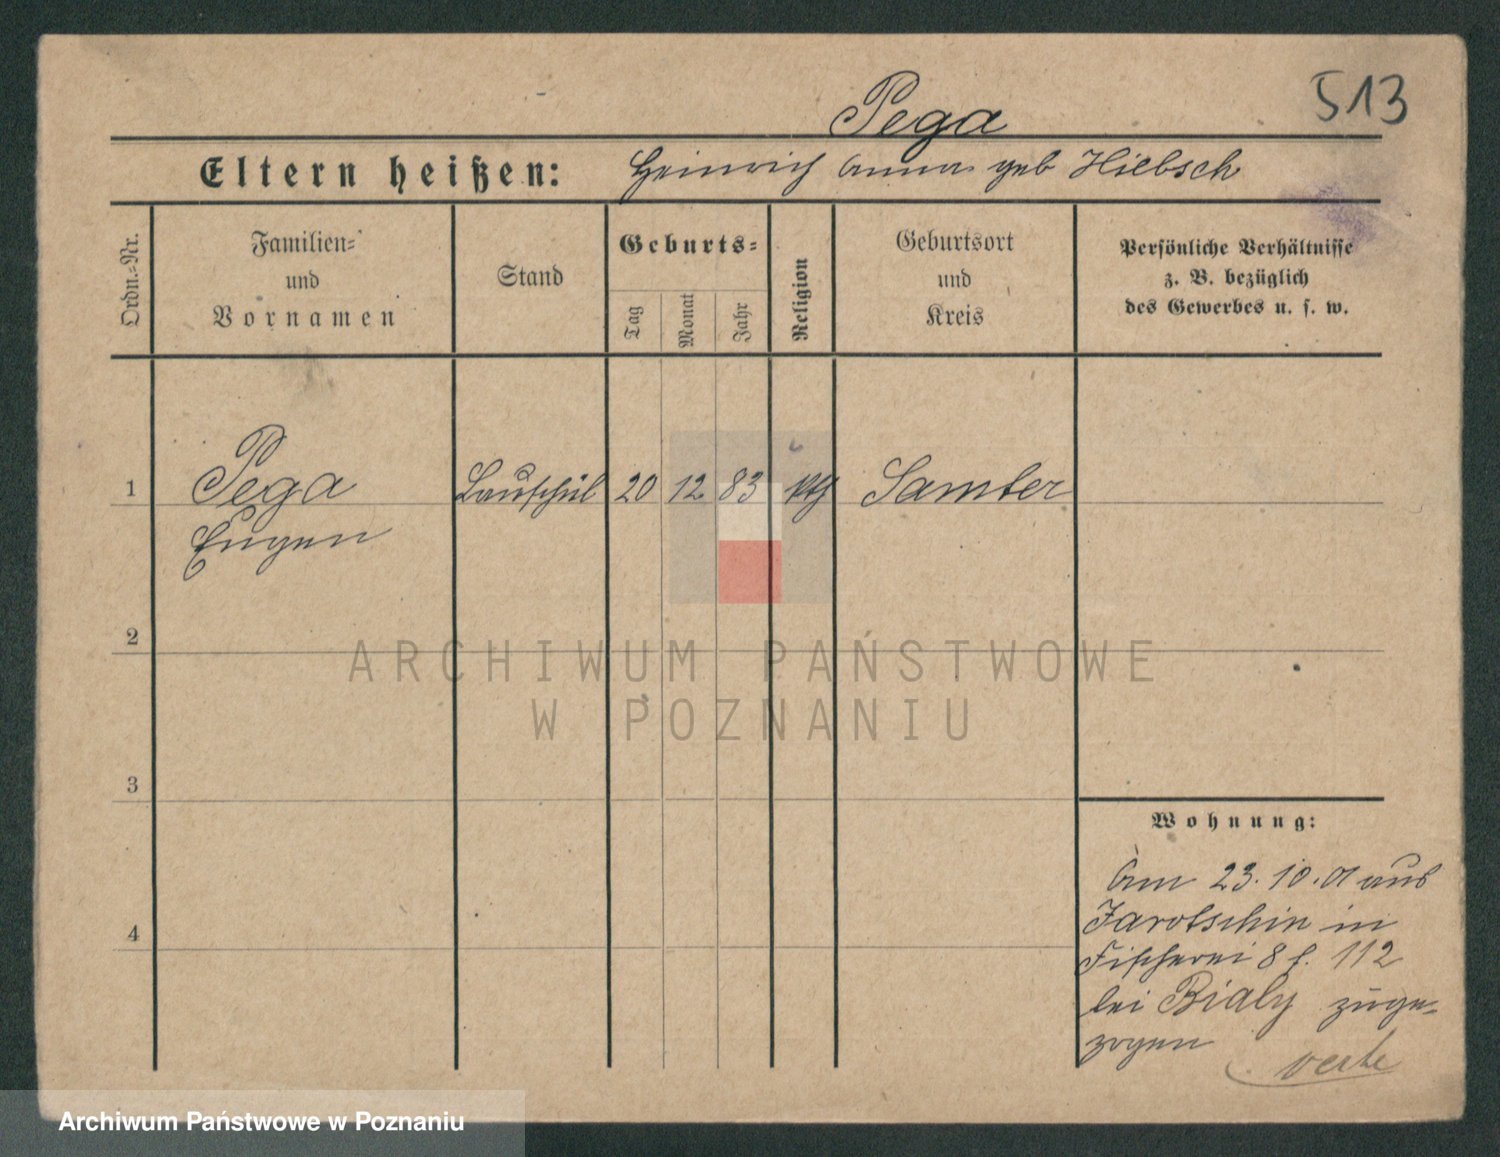 513
Pega
Eltern heißen: Heinrich Anna geb Hiebsch
Ordn.-Nr.
Familien-
und
Vornamen
Stand
Geburts-
Tag
Monat
Jahr
Religion
Geburtsort
und
Kreis
Persönliche Verhältnisse
z. B. bezüglich
des Gewerbes u. s. w.
1 Pega 20 12 83 kth Samter
Eugen
2
3
4
Wohnung:
Am 23.10.01 aus
Jarotschin in
Fischerei 8 f. 112
bei Bialy zuge-
zogen
verte
ARCHIWUM PAŃSTWOWE
W POZNANIU
Archiwum Państwowe w Poznaniu